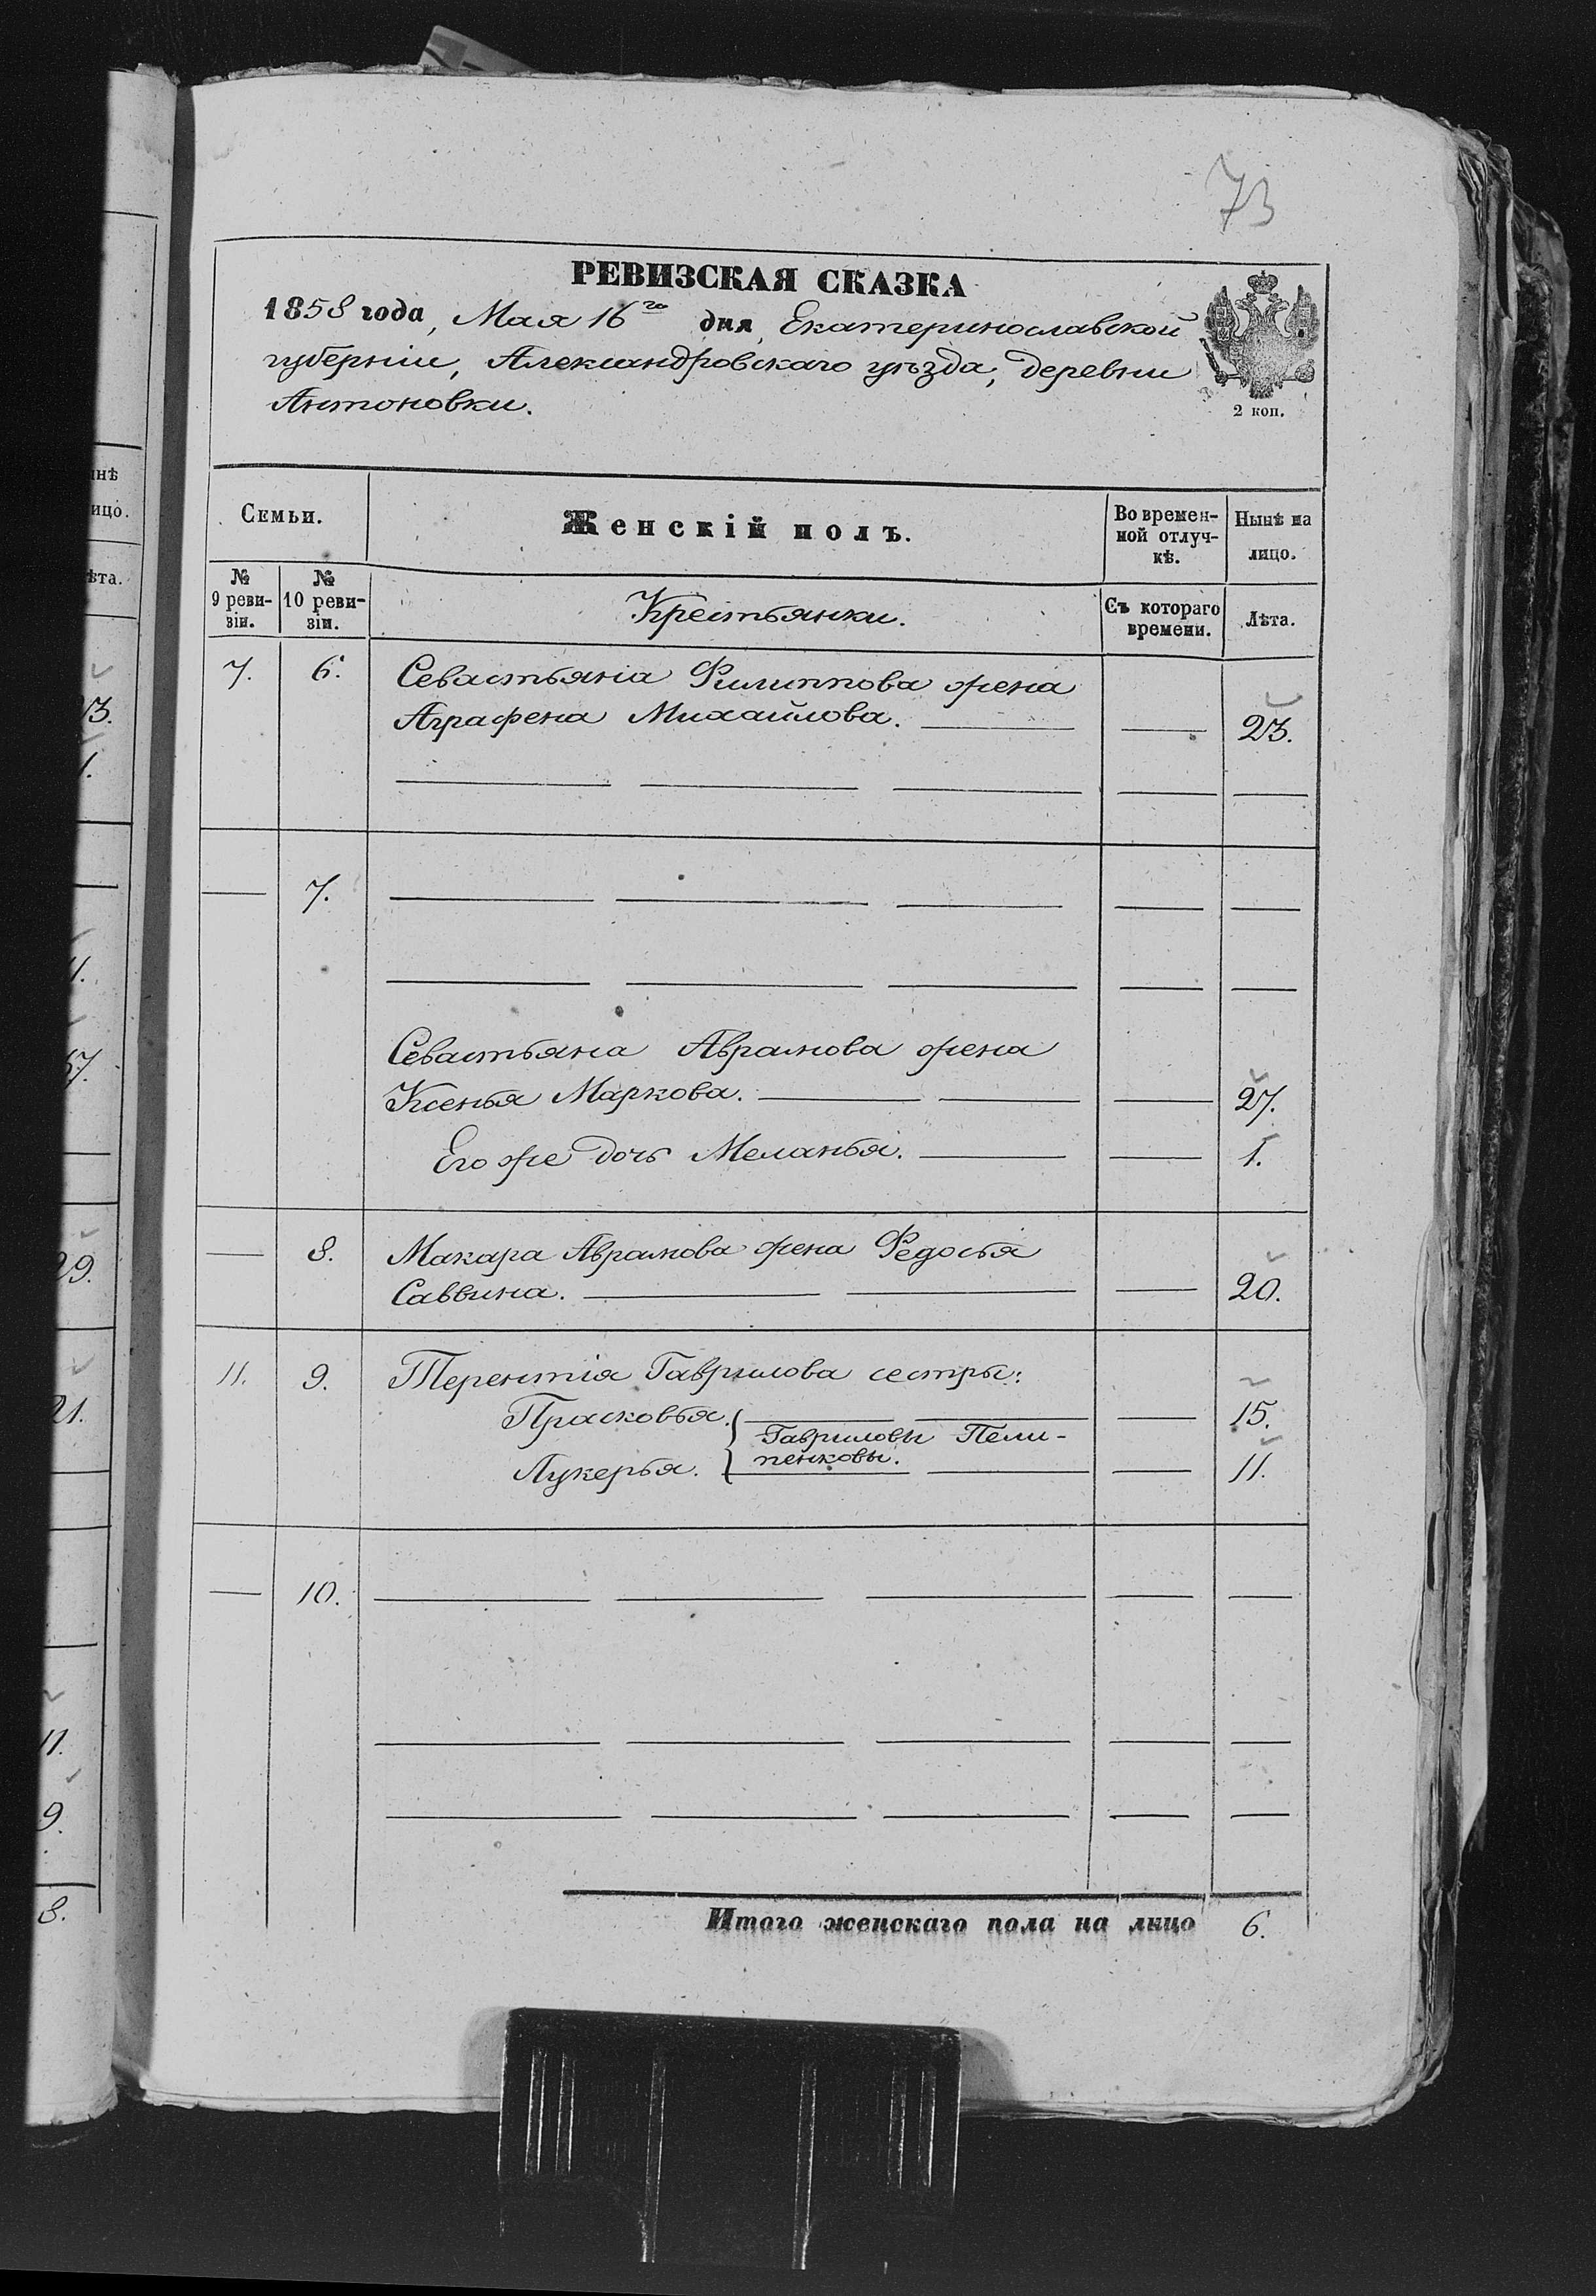 73
РЕВИЗСКАЯ СКАЗКА
1858 года, Мая 16го дня, Екатеринославской
губерніи, Александровскаго уѣзда, деревни
Антоновки.
2 коп.
Семьи.
Женскій полъ.
Во времен-
ной отлуч-
кѣ.
Нынѣ на
лицо.
№
9 реви-
зіи.
№
10 реви-
зіи.
Крестьянки.
Съ котораго
времени.
Лѣта.
7. 6. Севастьяна Филиппова жена
Аграфена Михайлова. 23.
7.
Севастьяна Аврамова жена
Ксенья Маркова. 27.
Его же дочь Меланья. 1.
8. Макара Аврамова жена Федосья
Саввина. 20.
11. 9. Терентія Гаврилова сестры:
Прасковья. 15.
Гавриловы Пели-
пенковы.
Лукерья. 11.
10.
Итого женскаго пола на лицо 6.
нѣ
ицо.
ѣта.
29.
21.
11.
9.